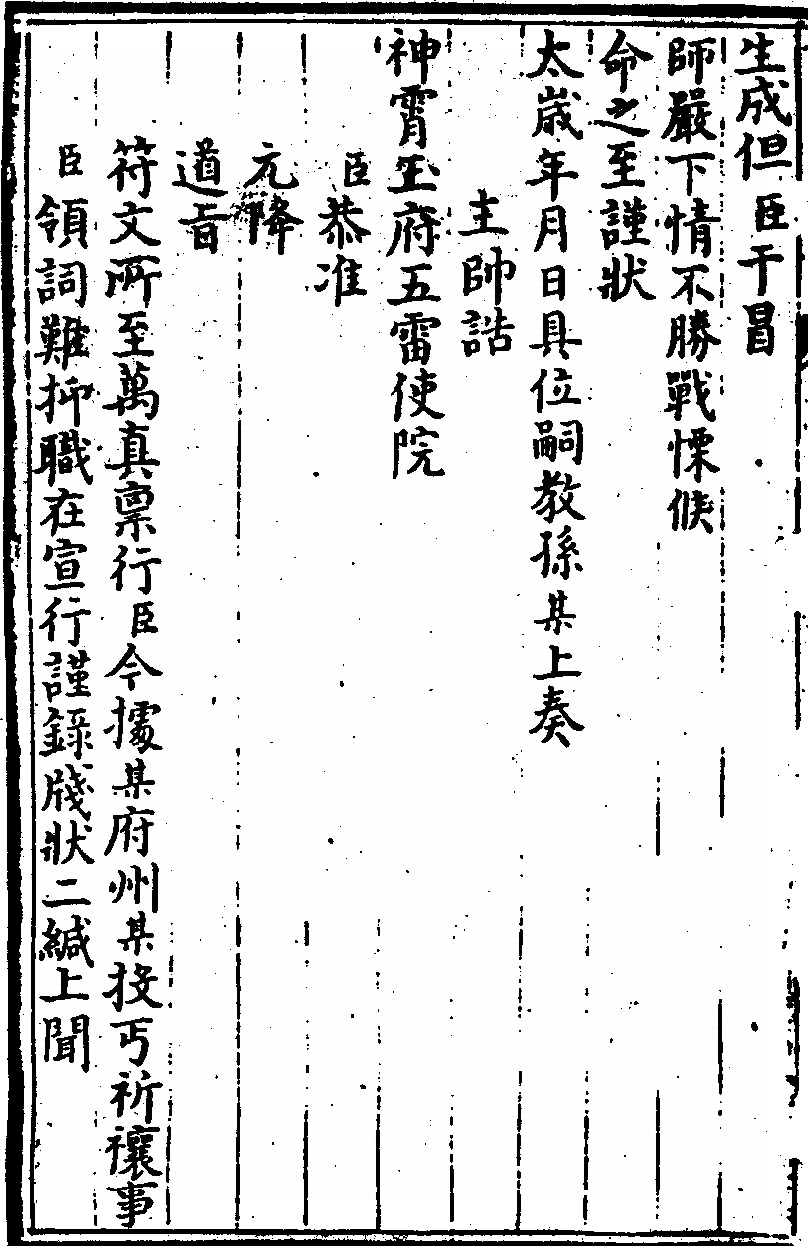 生成但臣干冒
師嚴下情不勝戰慄候
命之至謹狀
太歲年月日具位嗣教孫某上奏
主帥誥
神霄玉府五雷使院
臣恭准
元降
道旨
符文所至萬真禀行臣今據某府州某投丐祈禳事
臣領詞難抑職在宣行謹錄牋狀二緘上聞